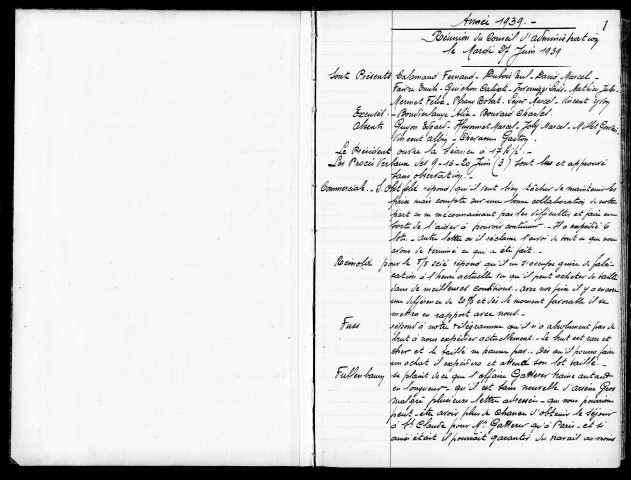 Année 1939. -
1
Réunion du Conseil d'administration
le Mardi 27 Juin 1939
Sont Présents Calamand Fernand - Dubois Paul - David Marcel -
Faivre Emile - Guichon Calixte - Louis - Mathieu Jules -
Mermet Félix - Robert - Léger Marcel - Vincent Yvon
Excusés. - Alix - Bouvard Charles.
Absents Guyon Edgard - Huguenet Marcel - Joly Marcel - Millet Gaston
Vincent Albin - Chevassus Gaston.
Le Président ouvre la séance à 17 h 1/2. -
Les Procès Verbaux des 9-16-20 Juin (3) sont lus et approuvés
sans observation. -
Commerciale. - S. répond qu'il veut bien tâcher de maintenir les
prix mais compte sur une bonne collaboration de notre
part en ne méconnaissant pas les difficultés et faire en
sorte de l'aider à pouvoir continuer. - Il a expédié 6
lots. - Autre lettre où il réclame l'envoi de tout ce que nous
avons de terminé ce qui a été fait. -
Reinold pour le scié répond qu'il ne s'occupe guère de fabri-
cation à l'heure actuelle vu qu'il peut acheter du taillé
dans de meilleures conditions. - Avec nos prix il y a encore
une différence de 20% et dès le moment favorable il se
mettra en rapport avec nous. -
Fuss répond à notre télégramme qu'il n'a absolument pas de
brut à nous expédier actuellement. - Le brut est rare et
cher et le taillé ne hausse pas. - Dès qu'il pourra faire
un achat il expédiera et attend son lot taillé. -
se plaint de ce que l'affaire Gatterer traîne autant
en longueur - qu'il est sans nouvelle d'Arsène Gros
malgré plusieurs lettres adressées - que nous pourrions
peut-être avoir plus de chance d'obtenir le séjour
à St Claude pour Mr. Gatterer qu'à Paris - et si
ainsi était il pourrait garantir du travail au moins